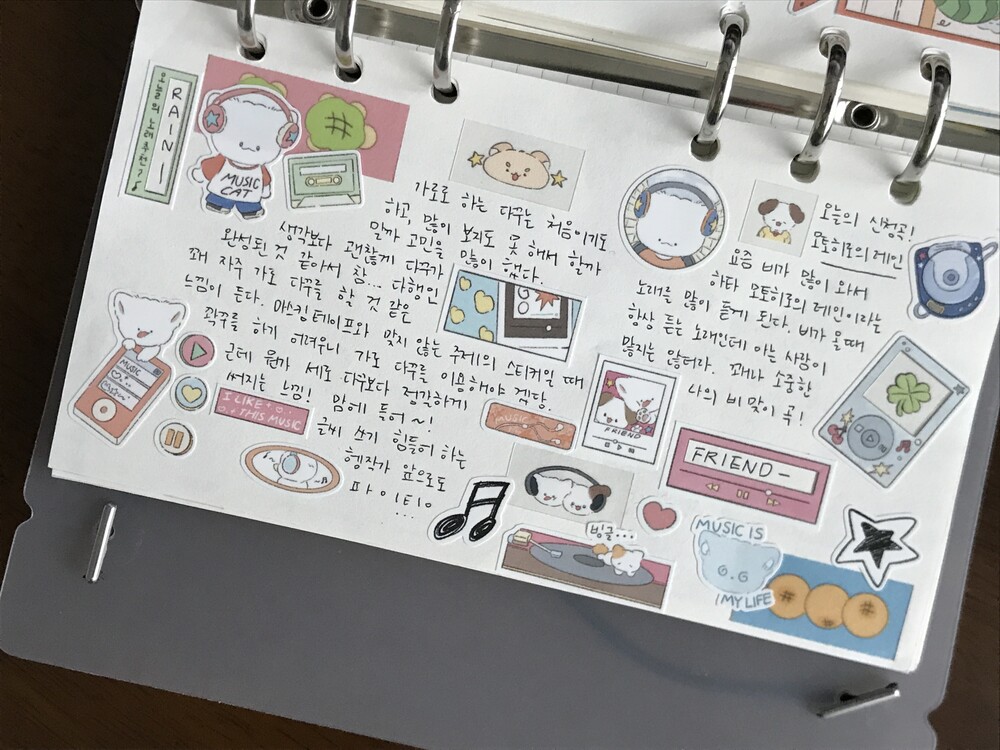 오늘의 노래추천!
RAIN!
MUSIC
CAT
가로로 하는 다꾸는 처음이기도
하고, 많이 보지도 못 해서 할까
말까 고민을 많이 했다.
생각보다 괜찮게 다꾸가
완성된 것 같아서 참... 다행인
꽤 자주 가로 다꾸를 할 것 같은
느낌이 든다. 마스킹테이프와 맞지 않는 주제의 스티커일 때
꽉꾸를 하기 어려우니 가로 다꾸를 이용해야 겠당.
근데 뭔가 세로 다꾸보다 정갈하게
써지는 느낌! 맘에 들어~!
글씨 쓰기 힘들어 하는
헹작가 앞으로도
파이티잉
...
MUSIC
I LIKE
THIS MUSIC
MUSIC
FRIEND
빙글...
오늘의 신청곡!
모토히로의 레인
요즘 비가 많이 와서
하타 모토히로의 레인이라는
노래를 많이 듣게 된다. 비가 올 때
항상 듣는 노래인데 아는 사람이
많지는 않더라. 꽤나 소중한
나의 비 맞이 곡!
FRIEND-
MUSIC IS
MY LIFE